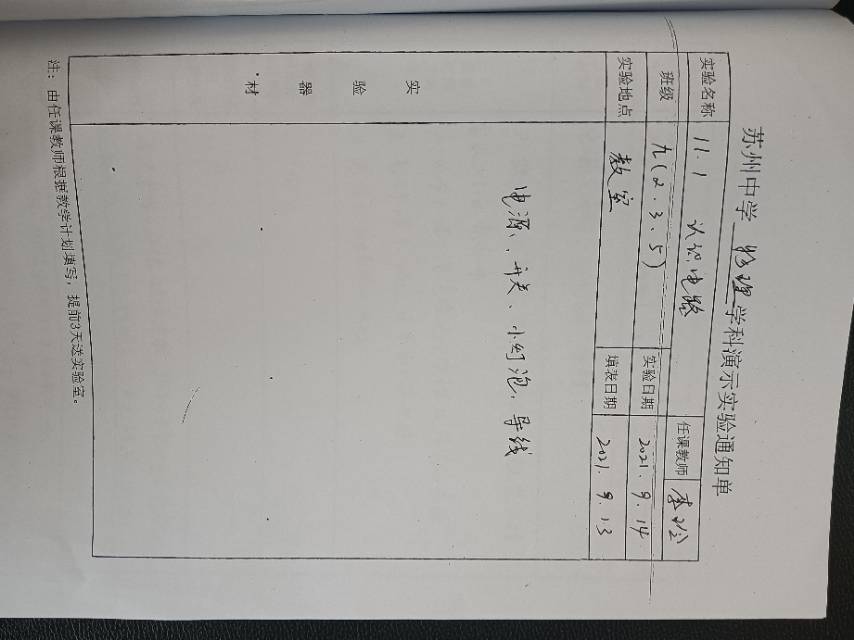 苏州中学 物理 学科演示实验通知单
实验名称 11.1 认识电路 任课教师
班级 九(2.3.5) 实验日期 2021.9.14
实验地点 教室 填表日期 2021.9.13
实验器材
电源、开关、小灯泡、导线
注：由任课教师根据教学计划填写，提前3天送实验室。